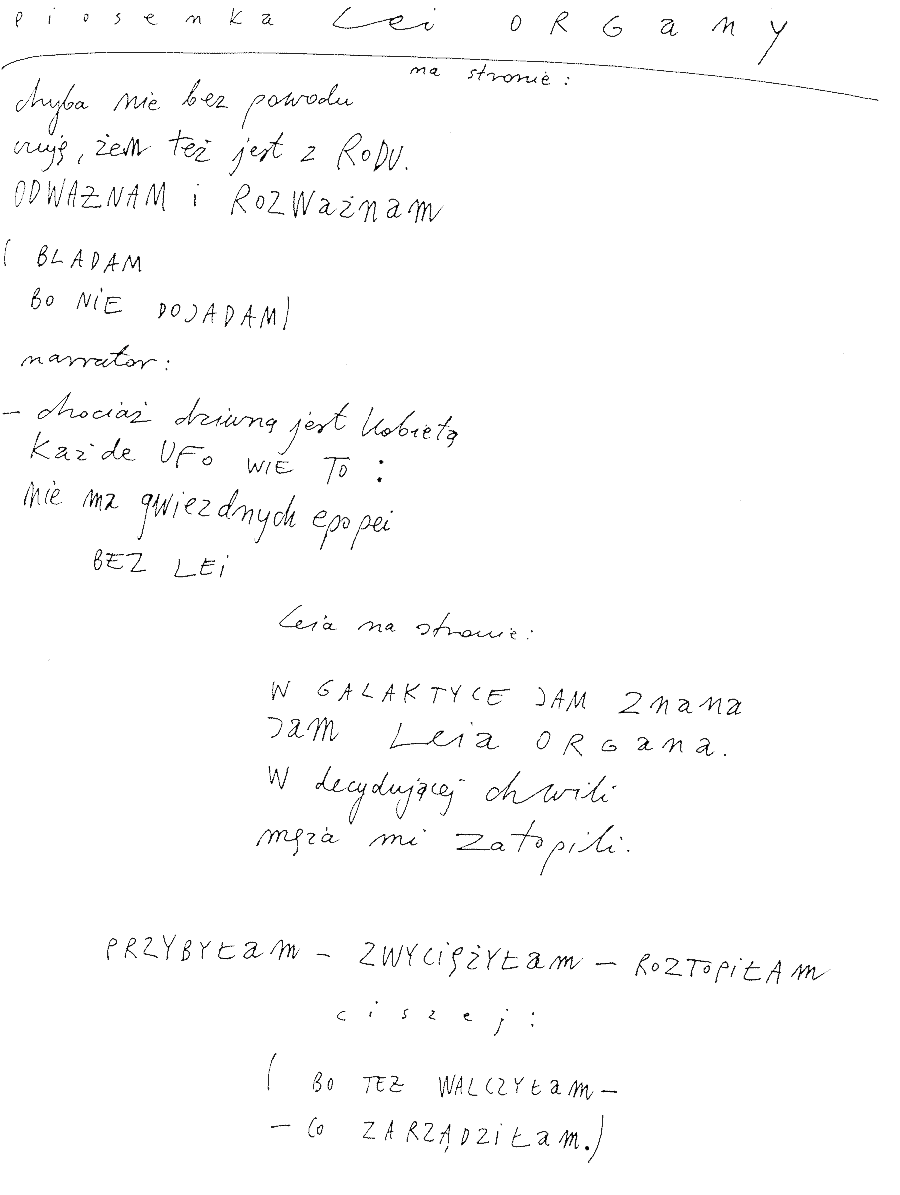 piosenka Lei ORGany
na stronie:
chyba nie bez powodu
czuję, żem też jest z RODU.
ODWAŻNAM i ROZWażnam
( BLADAM
BO NiE DOJADAM)
narrator:
- chociaż dziwną jest kobietą
każde UFO WIE TO :
nie ma gwiezdnych epopei
BEZ LEi
Leia na stronie:
W GALAKTYCE JAM Znana
JAM Leia ORGana.
W decydującej chwili
męża mi zatopili.
PRZYBYŁam - ZWYCiĘŻYŁam - ROZTOPiŁAM
ciszej:
( BO TEŻ WALCZYŁam -
- CO ZARZĄDZiŁam.)